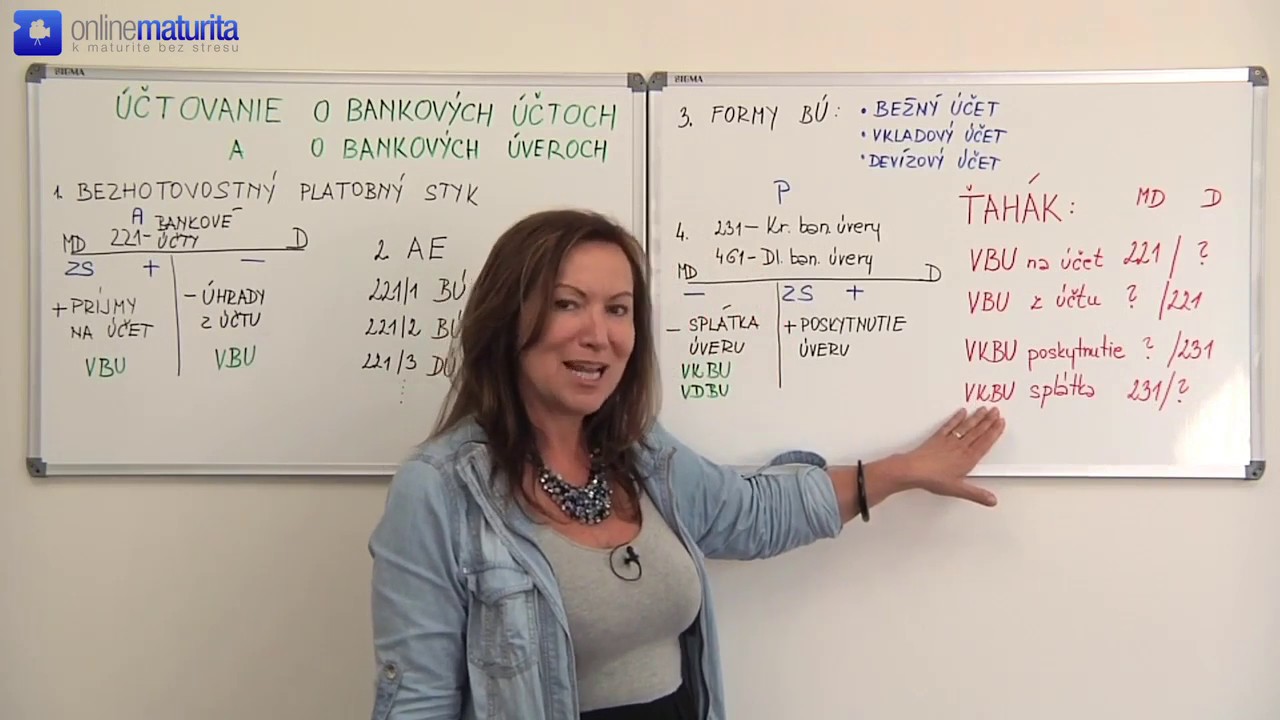 onlinematurita
k maturite bez stresu
SIGMA
ÚČTOVANIE O BANKOVÝCH ÚČTOCH
A O BANKOVÝCH ÚVEROCH
1. BEZHOTOVOSTNÝ PLATOBNÝ STYK
A
MD 221- BANKOVÉ ÚČTY D
ZS + −
+ PRÍJMY
NA ÚČET
VBU
− ÚHRADY
Z ÚČTU
VBU
2 AE
221/1 BÚ
221/2 BÚ
221/3 DÚ
⋮
SIGMA
3. FORMY BÚ: • BEŽNÝ ÚČET
• VKLADOVÝ ÚČET
• DEVÍZOVÝ ÚČET
P
4. 231 – Kr. ban. úvery
461 – Dl. ban. úvery
MD D
− ZS +
− SPLÁTKA
ÚVERU
VKBU
VDBU
+ POSKYTNUTIE
ÚVERU
ŤAHÁK: MD D
VBU na účet 221 / ?
VBU z účtu ? /221
VKBU poskytnutie ? /231
VKBU splátka 231/?